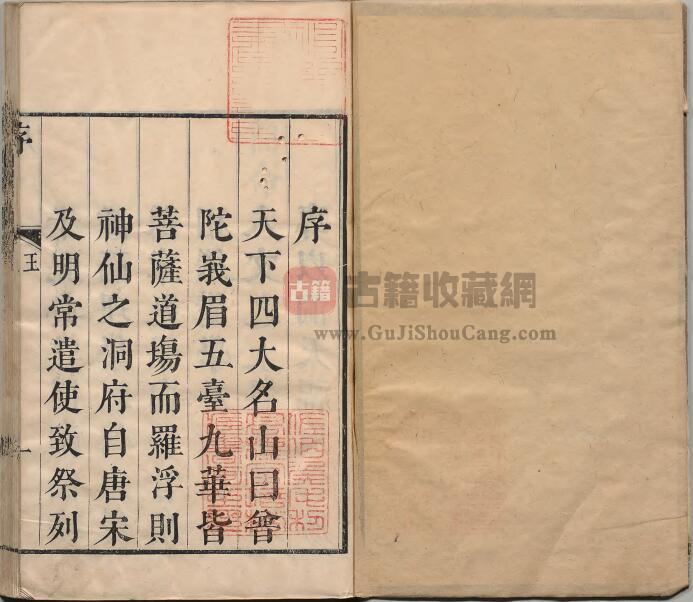 序
天下四大名山曰普
陀峩眉五臺九華皆
菩薩道塲而羅浮則
神仙之洞府自唐宋
及明常遣使致祭列
序
王
一
古籍
古籍收藏網
www.GuJiShouCang.com